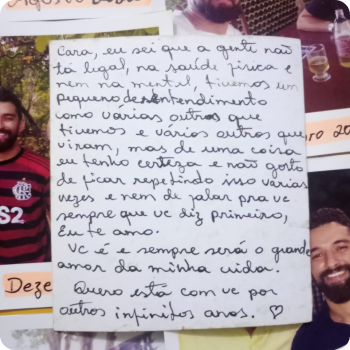 Agosto 20
Cara, eu sei que a gente não
tá legal, na saúde física e
nem na mental, tivemos um
pequeno desentendimento
como vários outros que
tivemos e vários outros que
viram, mas de uma coisa
eu tenho certeza e não gosto
de ficar repetindo isso várias
vezes e nem de falar pra vc
sempre que vc diz primeiro,
Eu te amo.
Vc é e sempre será o grande
amor da minha vida.
Quero está com vc por
outros infinitos anos. ♡
ro 20
S2
Deze